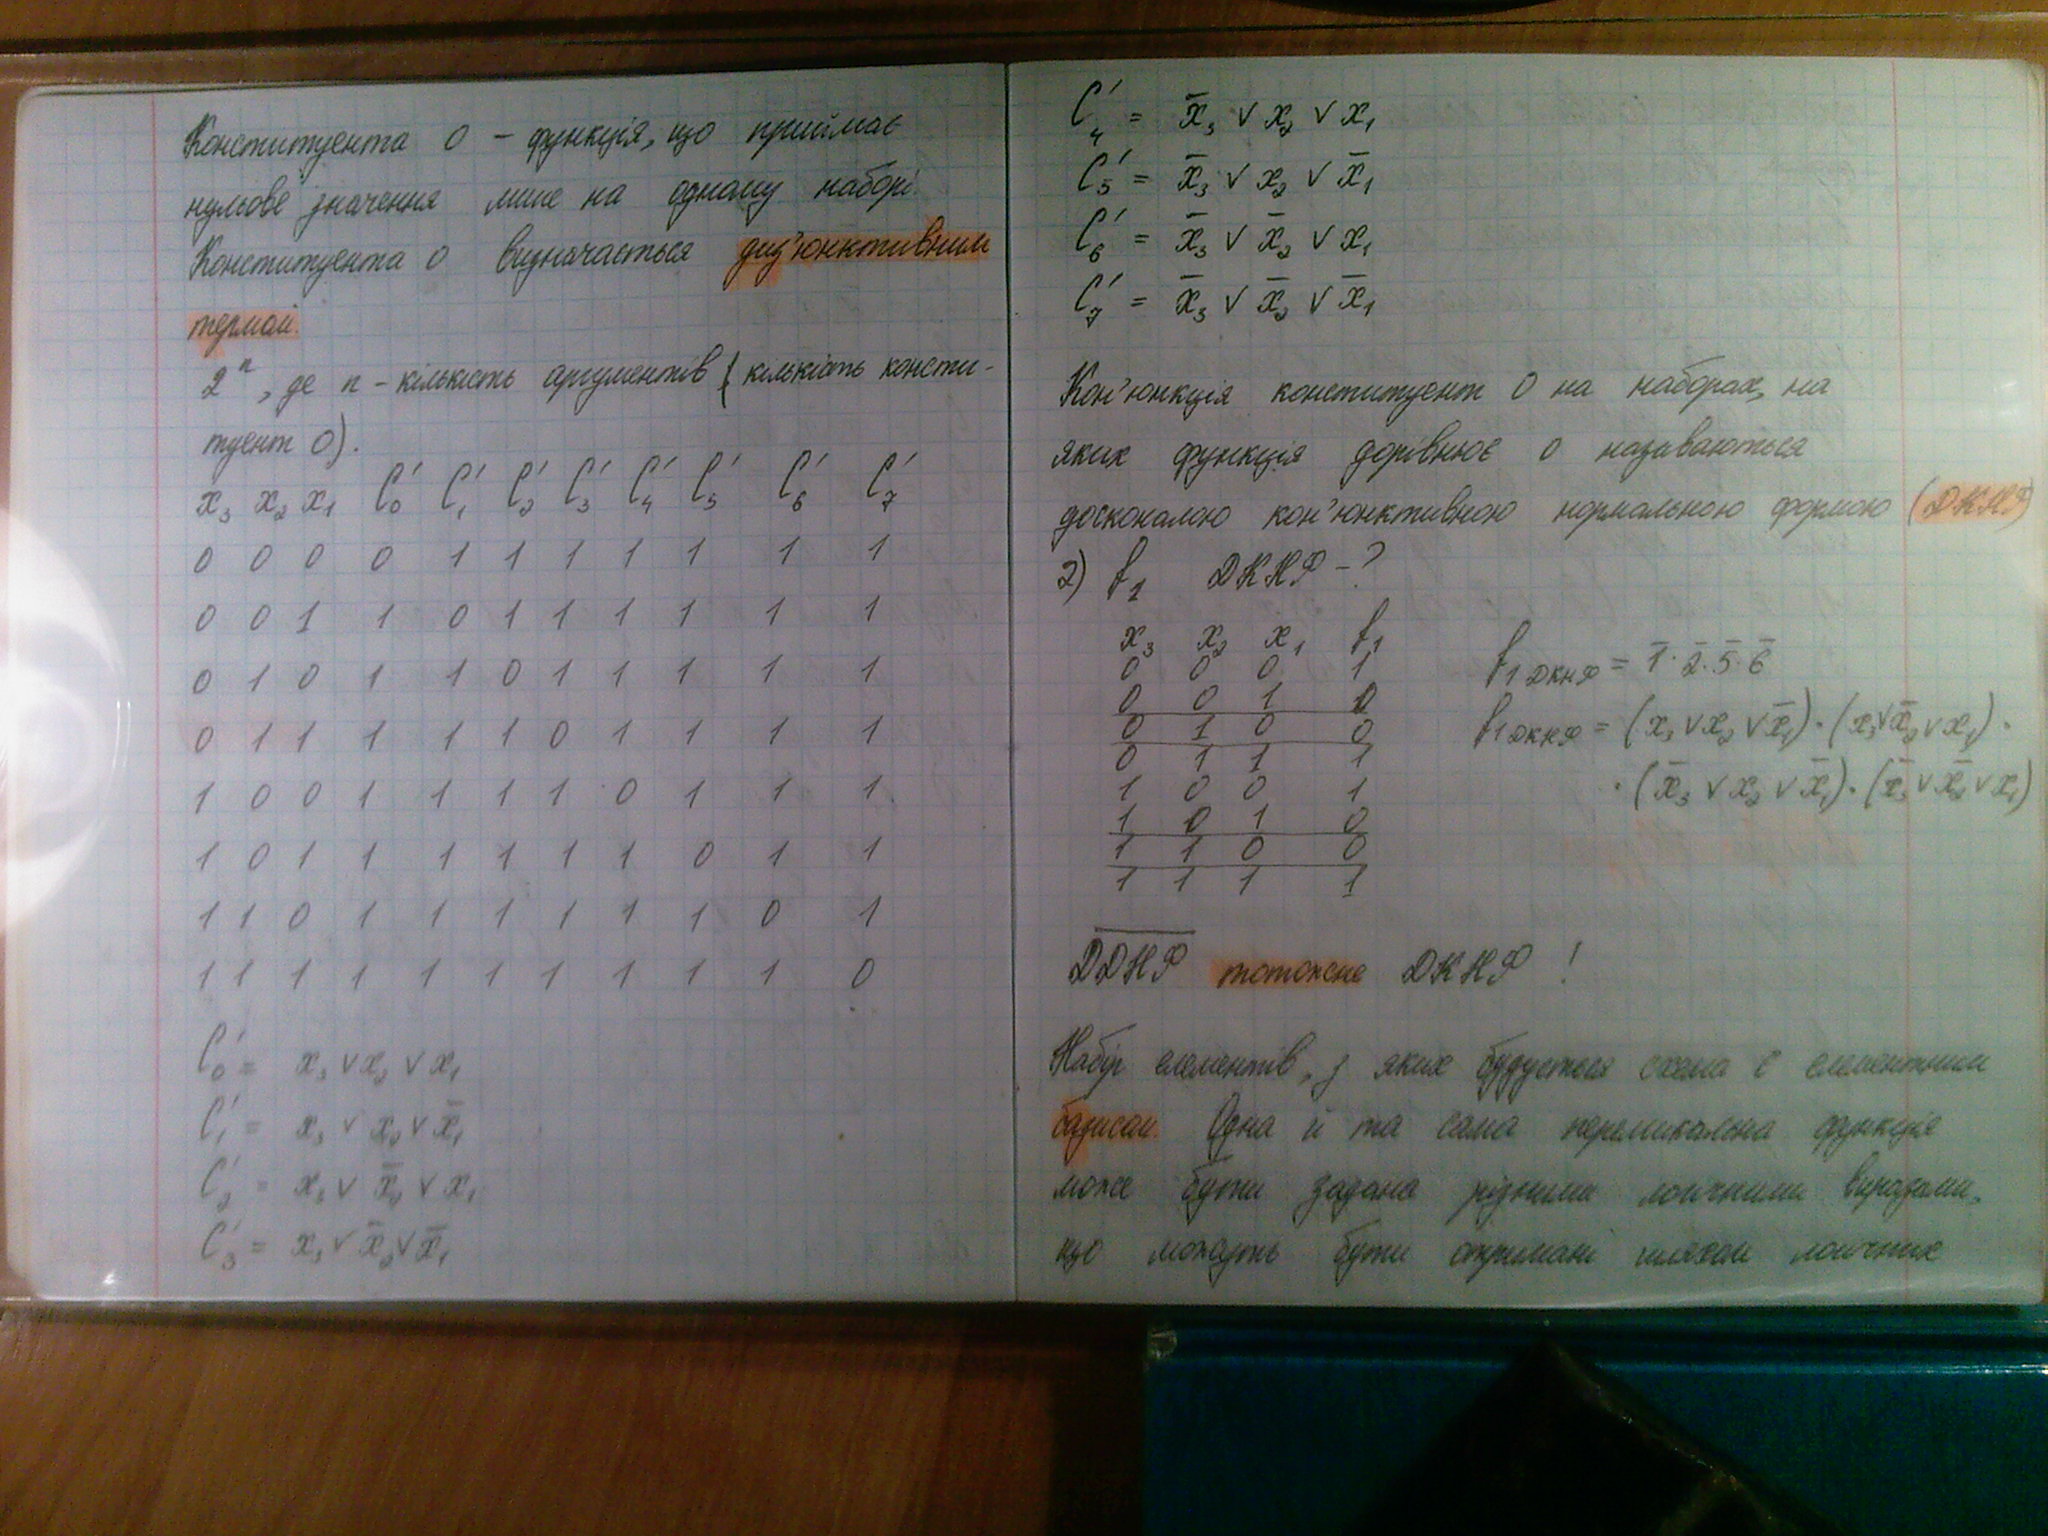 Конституента 0 – функція, що приймає
нульове значення лише на одному наборі.
Конституента 0 визначається диз'юнктивним
термом.
2ⁿ, де n – кількість аргументів (кількість консти-
туент 0).
x₃ x₂ x₁ C₀' C₁' C₂' C₃' C₄' C₅' C₆' C₇'
0 0 0 0 1 1 1 1 1 1 1
0 0 1 1 0 1 1 1 1 1 1
0 1 0 1 1 0 1 1 1 1 1
0 1 1 1 1 1 0 1 1 1 1
1 0 0 1 1 1 1 0 1 1 1
1 0 1 1 1 1 1 1 0 1 1
1 1 0 1 1 1 1 1 1 0 1
1 1 1 1 1 1 1 1 1 1 0
C₀' = x₃ ∨ x₂ ∨ x₁
C₁' = x₃ ∨ x₂ ∨ x̄₁
C₂' = x₃ ∨ x̄₂ ∨ x₁
C₃' = x₃ ∨ x̄₂ ∨ x̄₁
C₄' = x̄₃ ∨ x₂ ∨ x₁
C₅' = x̄₃ ∨ x₂ ∨ x̄₁
C₆' = x̄₃ ∨ x̄₂ ∨ x₁
C₇' = x̄₃ ∨ x̄₂ ∨ x̄₁
Кон'юнкція конституент 0 на наборах, на
яких функція дорівнює 0 називаються
досконалою кон'юнктивною нормальною формою (ДКНФ)
2) f₁ ДКНФ – ?
x₃ x₂ x₁ f₁
0 0 0 1
0 0 1 0
0 1 0 0
0 1 1 1
1 0 0 1
1 0 1 0
1 1 0 0
1 1 1 1
f₁ ДКНФ = 1̄ · 2̄ · 5̄ · 6̄
f₁ ДКНФ = (x₃ ∨ x₂ ∨ x̄₁) · (x₃ ∨ x̄₂ ∨ x₁) ·
· (x̄₃ ∨ x₂ ∨ x̄₁) · (x̄₃ ∨ x̄₂ ∨ x₁)
D̅Д̅Н̅Ф̅ тотожне ДКНФ !
Набір елементів, з яких будується схема є елементним
базисом. Одна й та сама перемикальна функція
може бути задана різними логічними виразами,
що можуть бути отримані шляхом логічних